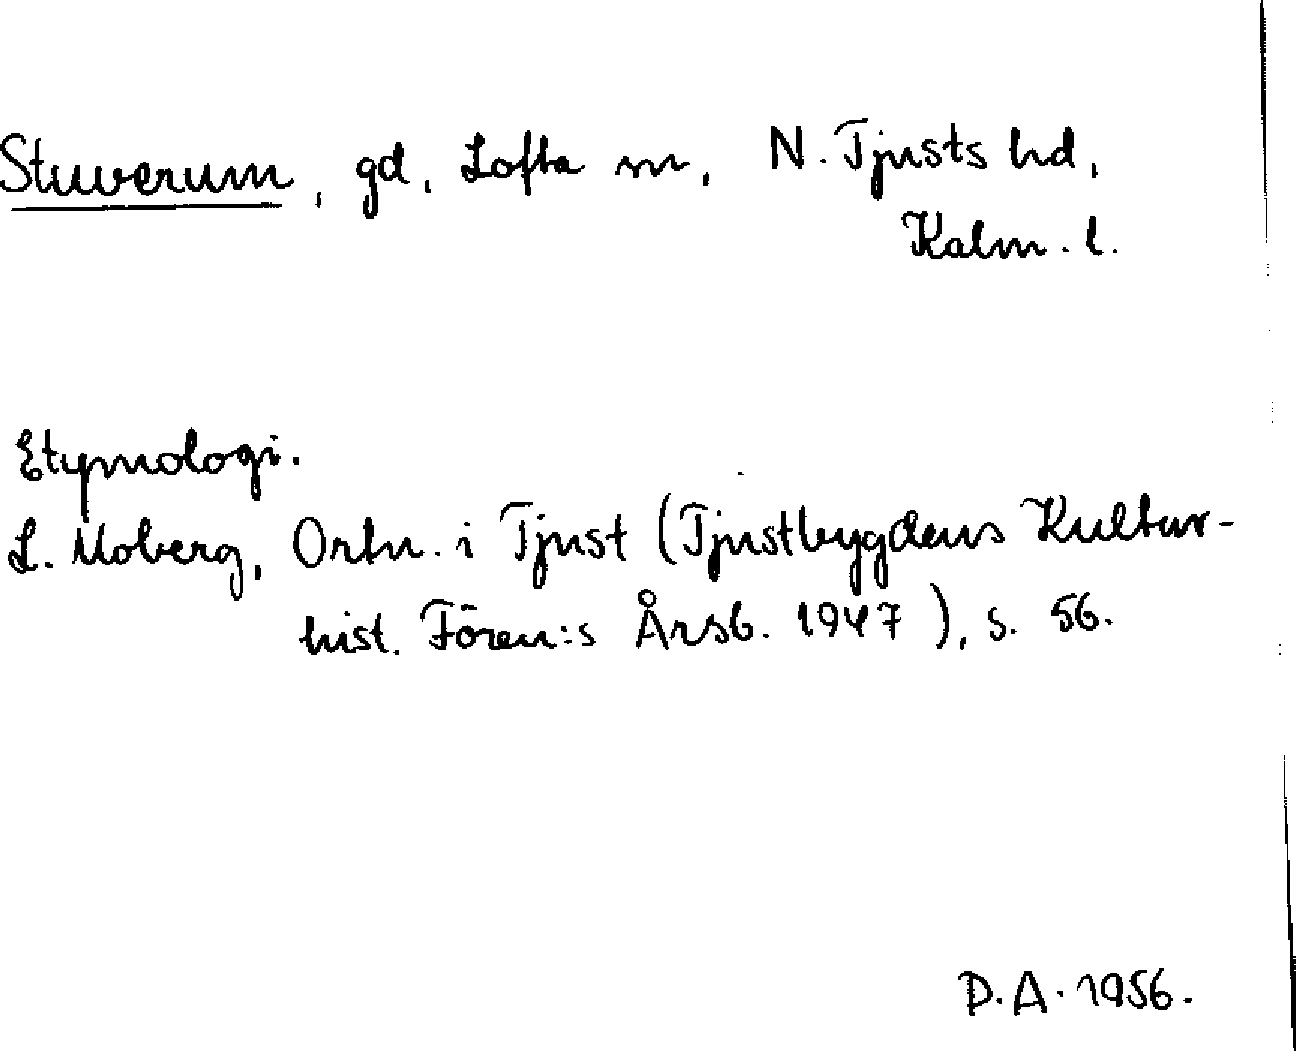 Stuverum, gd, Lofta sn, N. Tjusts hd,
Kalm. l.
Etymologi.
L. Moberg, Ortn. i Tjust (Tjustbygdens Kultur-
hist. Fören:s Årsb. 1947), s. 56.
D.A. 1956.